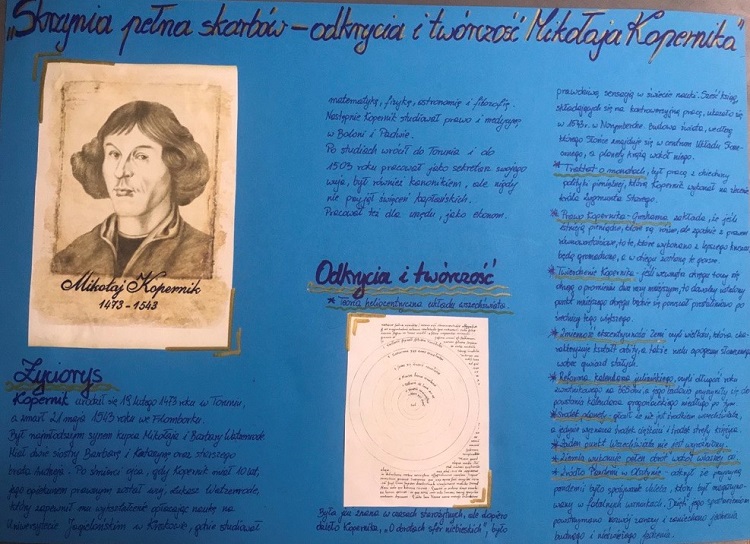 „Skrzynia pełna skarbów – odkrycia i twórczość Mikołaja Kopernika”
Mikołaj Kopernik
1473 - 1543
Życiorys
Kopernik urodził się 19 lutego 1473 roku w Toruniu,
a zmarł 21 maja 1543 roku we Fromborku.
Był najmłodszym synem kupca Mikołaja i Barbary Watzenrode.
Miał dwie siostry Barbarę i Katarzynę oraz starszego
brata Andrzeja. Po śmierci ojca, gdy Kopernik miał 10 lat,
jego opiekunem prawnym został wuj, Łukasz Watzenrode,
który zapewnił mu wykształcenie opłacając naukę na
Uniwersytecie Jagielońskim w Krakowie, gdzie studiował
matematykę, fizykę, astronomię i filozofię.
Następnie Kopernik studiował prawo i medycynę
w Bolonii i Padwie.
Po studiach wrócił do Torunia i do
1503 roku pracował jako sekretarz swojego
wuja, był również kanonikiem, ale nigdy
nie przyjął święceń kapłańskich.
Pracował też dla urzędu, jako ekonom.
Odkrycia i twórczość
* Teoria heliocentryczna układu wszechświata
Była już znana w czasach starożytnych, ale dopiero
dzieło Kopernika, „O obrotach sfer niebieskich”, było
prawdziwą sensacją w świecie nauki. Sześć ksiąg,
składających się na kontrowersyjną pracę, ukazało się
w 1543r. w Norymberdze. Budowa świata, według
którego Słońce znajduje się w centrum Układu Słone-
cznego, a planety krążą wokół niego.
* Traktat o monetach, był pracą z dziedziny
polityki pieniężnej, którą Kopernik wykonał na zlecenie
króla Zygmunta Starego.
* Prawo Kopernika - Greshama zakłada, że jeśli
istnieją pieniądze, które są równe, ale zgodnie z prawem
równowartościowe, to te, które wykonano z lepszego kruszcu
będą gromadzone, a w obiegu zostaną te gorsze.
* Twierdzenie Kopernika - jeśli wewnątrz okręgu toczy się
okrąg o promieniu dwa razy mniejszym, to dowolny ustalony
punkt mniejszego okręgu będzie się poruszał prostoliniowo po
średnicy tego większego.
* Zmienność ekscentryczności Ziemi czyli wielkości, która cha-
rakteryzuje kształt orbity, a także ruchu apogeum słonecznego
wobec gwiazd stałych.
* Reforma kalendarza juliańskiego, czyli długość roku
zwrotnikowego na 365 dni, a jego badania przyczyniły się do
powstania kalendarza gregoriańskiego według jego
* Środek planety - głosił, że nie jest środkiem wszechświata,
a jedynie wyznacza środek ciężkości i środek strefy księżyca.
* Żaden punkt Wszechświata nie jest wyróżniony.
* Ziemia wykonuje pełen obrót wokół własnej osi.
* Źródło Pandemii w Olsztynie - odkrył, że przyczyną
pandemii było spożywanie chleba, który był magazyno-
wany w fatalnych warunkach. Dzięki jego spostrzeżeniom
powstrzymano rozwój zarazy i zaniechano jedzenia
brudnego i nieświeżego jedzenia.